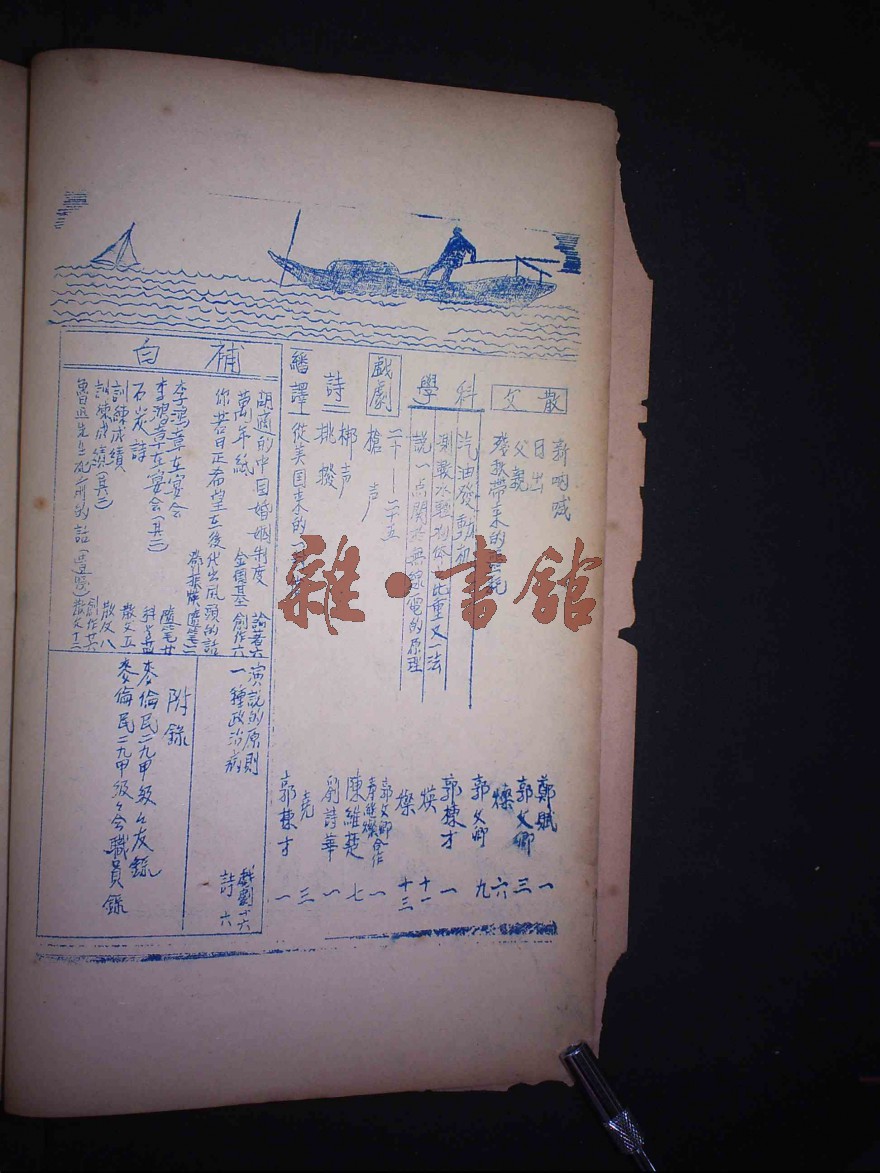 散文
新吶喊 鄭賦 一
日出 郭文卿 三
父親 燦 六
帶來的 郭文卿 九
科學
汽油發動 郭棟才 一
測軟水動物体比重又一法 煐 十一
說一点關於無線電的原理 燦 十三
戲劇
二十一—二十五 郭文卿 合作 一
槍声 陳維楚 七
詩
梆声 劉詩華 一
挑撥 堯 三
繙譯
從美国来的一 郭棟才 一
補白
胡適的中囯婚姻制度 論著六
萬年紙 金国基 創作六
你若日正希望在後代出風頭的話
李鴻章在宴会 隨筆廿
李鴻章在宴会(其二)
石炭詩 散文五
訓練成績 散文八
訓練成績(其二) 創作廿六
魯迅先生死前的話 散文十二
演説的原則 戲劇十六
一種政治病 詩 六
附錄
麥倫民二九甲級級友錄
麥倫民二九甲級級会職員錄
雜·書館